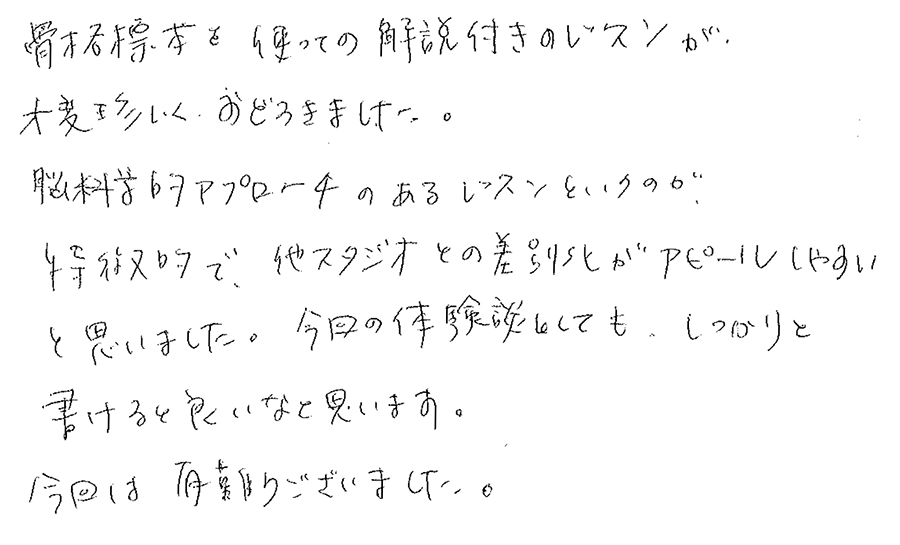 骨格標本を使っての解説付きのレッスンが、
大変珍しく、おどろきました。
脳科学的アプローチのあるレッスンというのが、
特徴的で、他スタジオとの差別化がアピールしやすい
と思いました。今回の体験談としても、しっかりと
書けると良いなと思います。
今回は有難うございました。